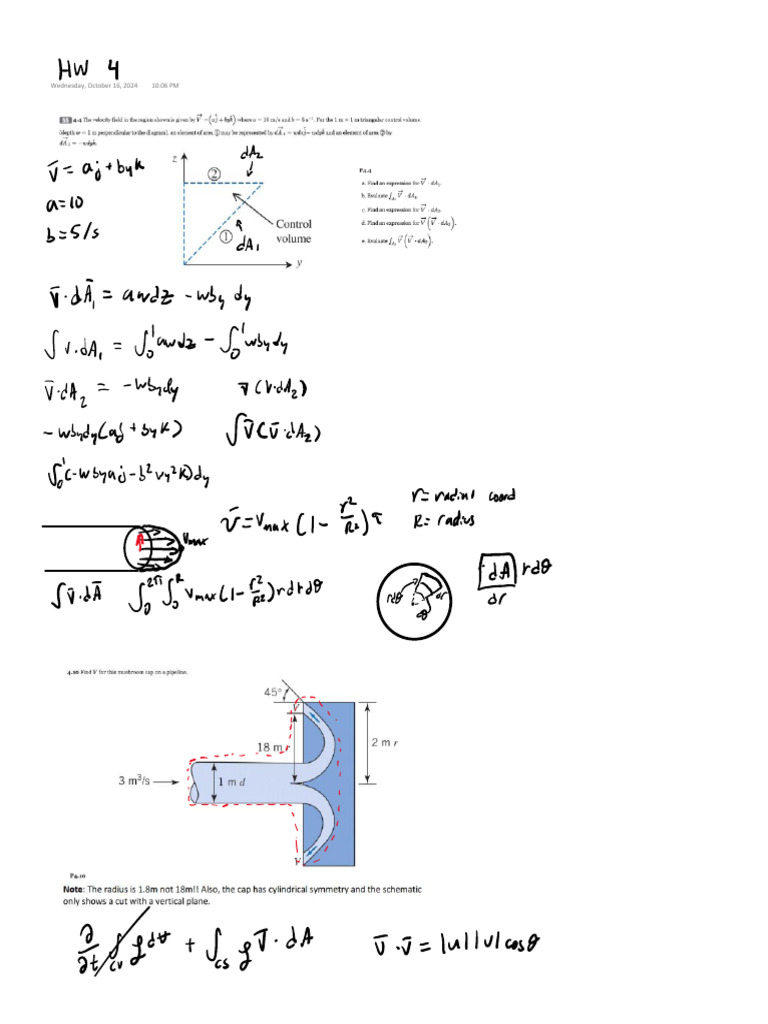 HW 4
Wednesday, October 16, 2024 10:06 PM
4.4 The velocity field in the region shown is given by V⃗ = (aĵ + byk̂) where a = 10 m/s and b = 5 s⁻¹. For the 1 m × 1 m triangular control volume
(depth w = 1 m perpendicular to the diagram), an element of area ① may be represented by dA⃗₁ = wdzĵ − wdyk̂ and an element of area ② by
dA⃗₂ = −wdyk̂.
V̄ = aj + byk
a=10
b=5/s
z
dA2
②
①
dA1
Control
volume
y
P4.4
a. Find an expression for V⃗ · dA₁.
b. Evaluate ∫A₁ V⃗ · dA₁.
c. Find an expression for V⃗ · dA₂.
d. Find an expression for V⃗ (V⃗ · dA₂).
e. Evaluate ∫A₂ V⃗ (V⃗ · dA₂).
V̄·dĀ₁ = awdz - wby dy
∫V·dA₁ = ∫₀¹ awdz - ∫₀¹ wbydy
V̄·dA₂ = -wbydy v̄(V·dA₂)
-wbydy(aj + byk) ∫V̄(V̄·dA₂)
∫₀¹(-wbyaj - b²wy²k)dy
A
Vmax
v̄ = Vmax(1 - r²/R²)î
r = radial coord
R = radius
∫V̄·dĀ ∫₀²π ∫₀ᴿ Vmax(1 - r²/R²)rdrdθ
rdθ
dr
dθ
dA rdθ
dr
4.10 Find V for this mushroom cap on a pipeline.
45°
V
18 m r
2 m r
3 m³/s
1 m d
V
P4.10
Note: The radius is 1.8m not 18m!! Also, the cap has cylindrical symmetry and the schematic
only shows a cut with a vertical plane.
∂/∂t ∫CV ρd∀ + ∫CS ρV̄·dA
ū·v̄ = |u||v|cosθ